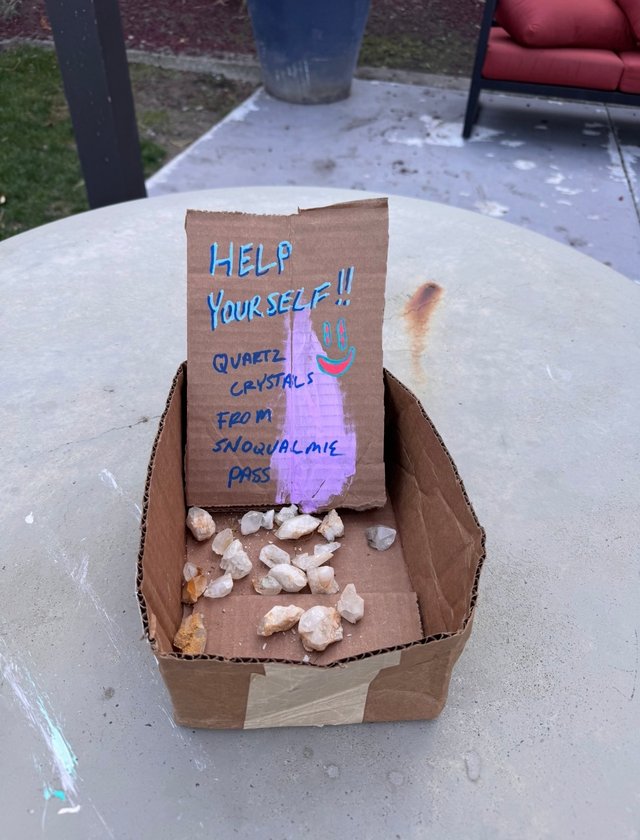 HELP
YOURSELF!!
QUARTZ
CRYSTALS
FROM
SNOQUALMIE
PASS